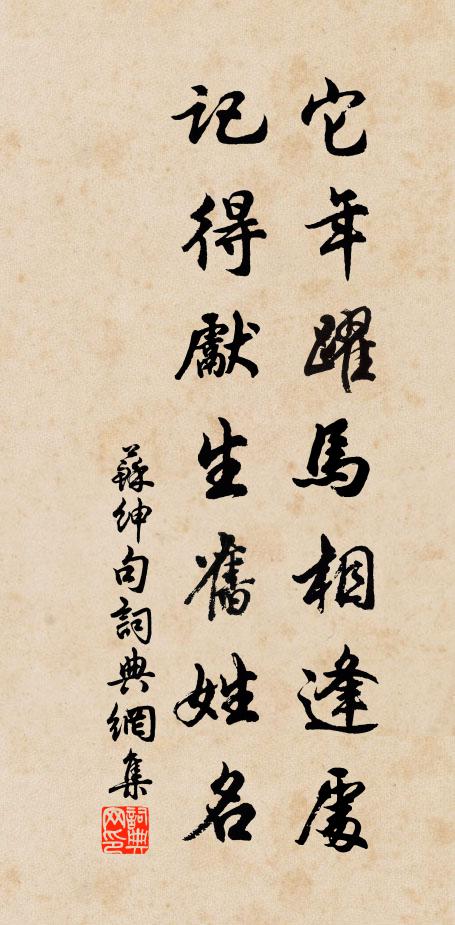 它年躍馬相逢處
記得獻生舊姓名
蘇紳句詞典網集
詞典網印